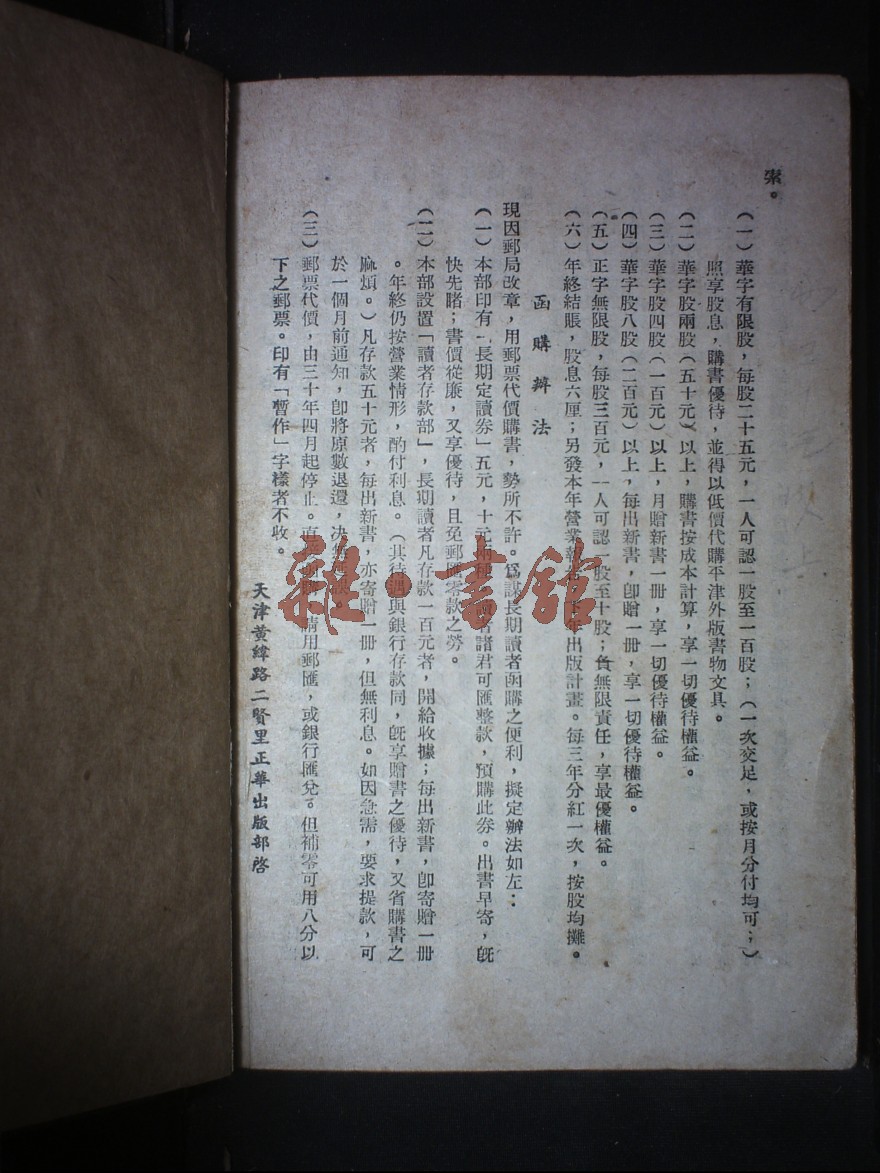 索。
（一）華字有限股，每股二十五元，一人可認一股至一百股；（一次交足，或按月分付均可；）
照享股息，購書優待，並得以低價代購平津外版書物文具。
（二）華字股兩股（五十元）以上，購書按成本計算，享一切優待權益。
（三）華字股四股（一百元）以上，月贈新書一冊，享一切優待權益。
（四）華字股八股（二百元）以上，每出新書，卽贈一冊，享一切優待權益。
（五）正字無限股，每股三百元，一人可認一股至十股；負無限責任，享最優權益。
（六）年終結賬，股息六厘；另發本年營業報　下年出版計畫。每三年分紅一次，按股均攤。
函購辦法
現因郵局改章，用郵票代價購書，勢所不許。爲謀長期讀者函購之便利，擬定辦法如左：
（一）本部印有「長期定讀券」五元，十元兩種　讀者諸君可匯整款，預購此券。出書早寄，旣
快先睹；書價從廉，又享優待，且免郵匯零款之勞。
（二）本部設置「讀者存款部」，長期讀者凡存款一百元者，開給收據；每出新書，卽寄贈一冊
。年終仍按營業情形，酌付利息。（其待遇與銀行存款同，旣享贈書之優待，又省購書之
麻煩。）凡存款五十元者，每出新書，亦寄贈一冊，但無利息。如因急需，要求提款，可
於一個月前通知，卽將原數退還，決
（三）郵票代價，由三十年四月起停止。直　請用郵匯，或銀行匯兌。但補零可用八分以
下之郵票。印有「暫作」字樣者不收。
天津黃緯路二賢里正華出版部啓
雜·書館